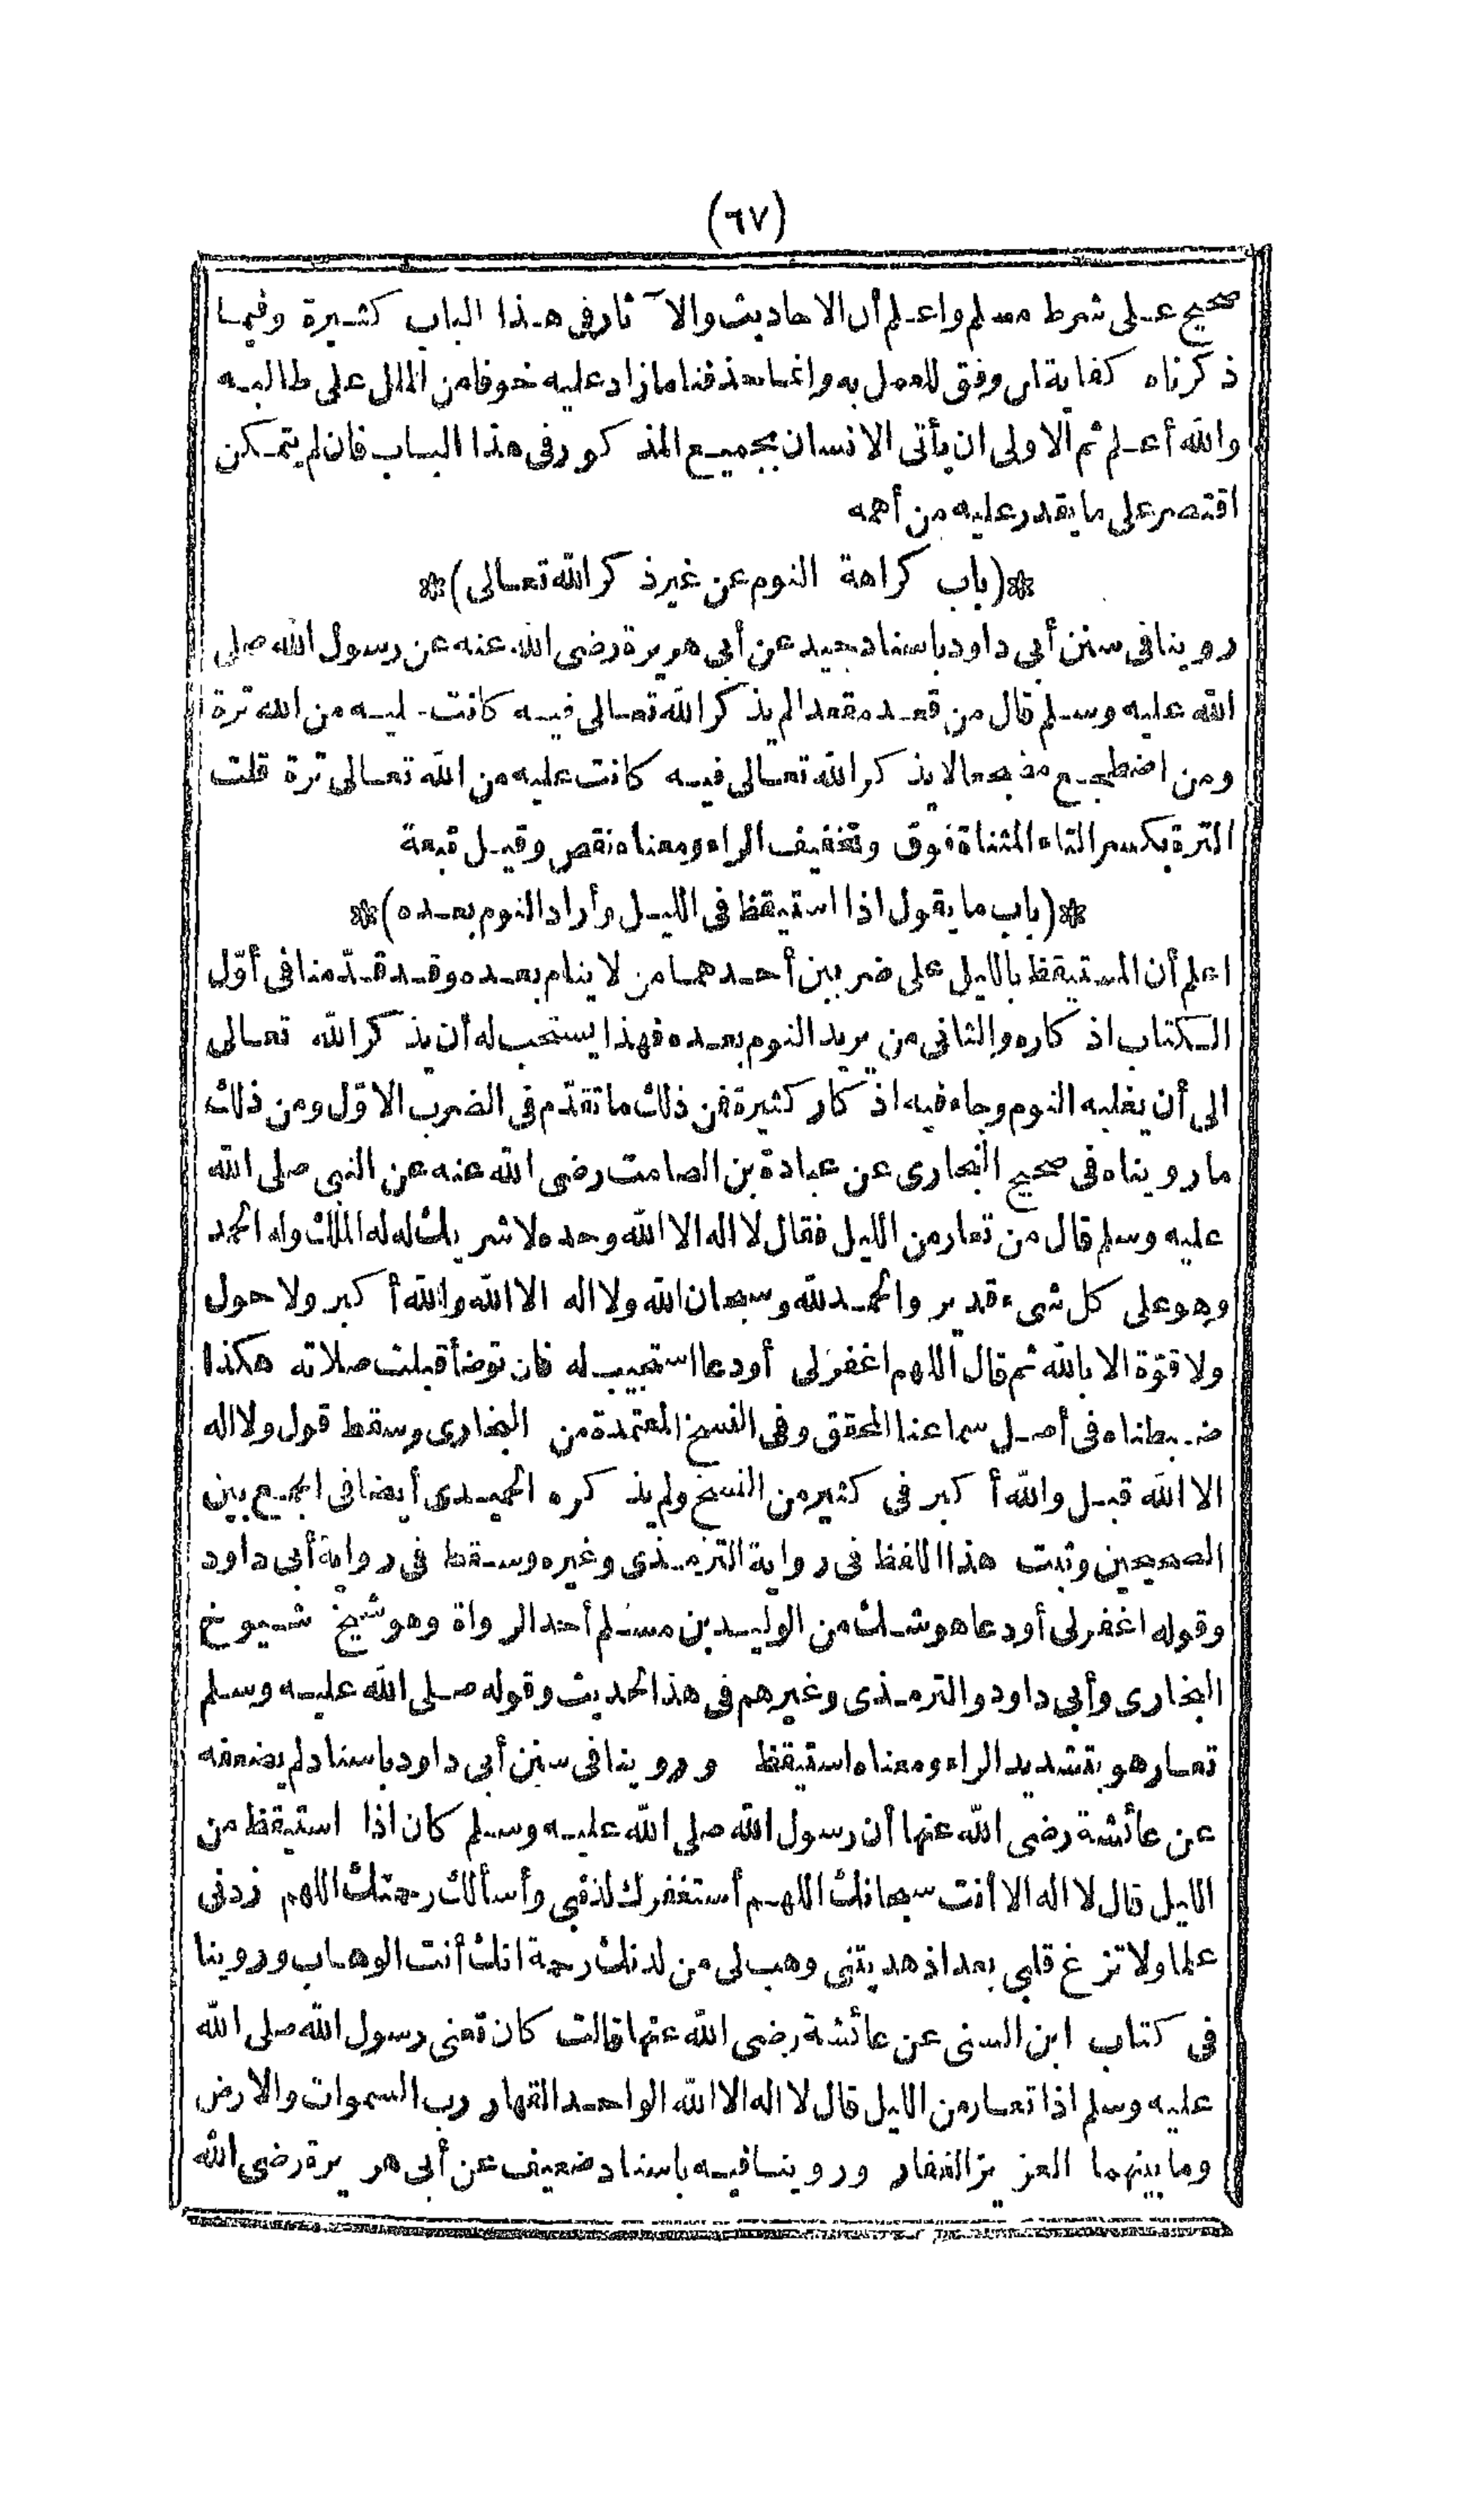 (٦٧)
صحيح على شرط مسلم واعلم أن الاحاديث والآثار فى هذا الباب كثيرة وفيما
ذكرناه كفاية لمن وفق للعمل به وانما حذفنا ما زاد عليه خوفا من الملل على طالبيه
والله أعلم ثم الاولى ان يأتى الانسان بجميع المذكور فى هذا الباب فان لم يتمكن
اقتصر على ما يقدر عليه من أهمه
*(باب كراهة النوم عن غير ذكر الله تعالى)*
روينا فى سنن أبى داود باسناد جيد عن أبى هريرة رضى الله عنه عن رسول الله صلى
الله عليه وسلم قال من قعد مقعدا لم يذكر الله تعالى فيه كانت عليه من الله ترة
ومن اضطجع مضجعا لا يذكر الله تعالى فيه كانت عليه من الله تعالى ترة قلت
الترة بكسر التاء المثناة فوق وتخفيف الراء ومعناه نقص وقيل تبعة
*(باب ما يقول اذا استيقظ فى الليل وأراد النوم بعده)*
اعلم أن المستيقظ بالليل على ضربين أحدهما من لا ينام بعده وقد قدّمنا فى أوّل
الكتاب اذكاره والثانى من يريد النوم بعده فهذا يستحب له أن يذكر الله تعالى
الى أن يغلبه النوم وجاء فيه اذكار كثيرة فمن ذلك ما تقدّم فى الضرب الاوّل ومن ذلك
ما رويناه فى صحيح البخارى عن عبادة بن الصامت رضى الله عنه عن النبى صلى الله
عليه وسلم قال من تعار من الليل فقال لا اله الا الله وحده لا شريك له له الملك وله الحمد
وهو على كل شىء قدير والحمد لله وسبحان الله ولا اله الا الله والله أكبر ولا حول
ولا قوّة الا بالله ثم قال اللهم اغفر لى أو دعا استجيب له فان توضأ قبلت صلاته هكذا
ضبطناه فى أصل سماعنا المحقق وفى النسخ المعتمدة من البخارى وسقط قول ولا اله
الا الله قبل والله أكبر فى كثير من النسخ ولم يذكره الحميدى أيضا فى الجمع بين
الصحيحين وثبت هذا اللفظ فى رواية الترمذى وغيره وسقط فى رواية أبى داود
وقوله اغفر لى أو دعا هو شك من الوليد بن مسلم أحد الرواة وهو شيخ شيوخ
البخارى وأبى داود والترمذى وغيرهم فى هذا الحديث وقوله صلى الله عليه وسلم
تعار هو بتشديد الراء ومعناه استيقظ وروينا فى سنن أبى داود باسناد لم يضعفه
عن عائشة رضى الله عنها أن رسول الله صلى الله عليه وسلم كان اذا استيقظ من
الليل قال لا اله الا أنت سبحانك اللهم أستغفرك لذنبى وأسألك رحمتك اللهم زدنى
علما ولا تزغ قلبى بعد اذ هديتنى وهب لى من لدنك رحمة انك أنت الوهاب وروينا
فى كتاب ابن السنى عن عائشة رضى الله عنها قالت كان تعنى رسول الله صلى الله
عليه وسلم اذا تعار من الليل قال لا اله الا الله الواحد القهار رب السموات والارض
وما بينهما العزيز الغفار وروينا فيه باسناد ضعيف عن أبى هريرة رضى الله